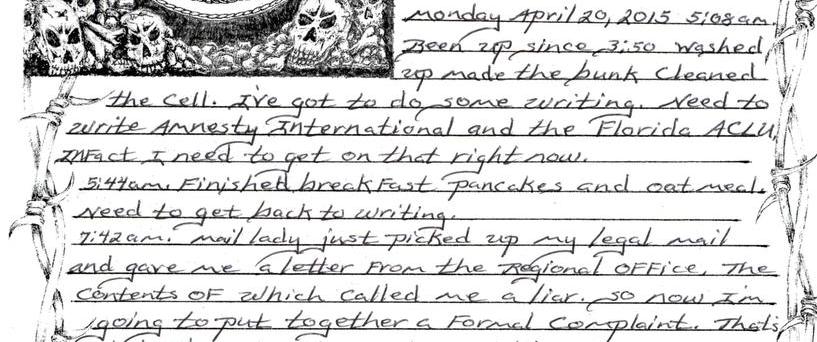 Monday April 20, 2015 5:08am.
Been up since 3:50 washed
up made the bunk Cleaned
the Cell. I've got to do some writing. Need to
write Amnesty International and the Florida ACLU,
InFact I need to get on that right now.
5:44am. Finished breakFast pancakes and oatmeal.
Need to get back to writing.
7:42am. mail lady just picked up my legal mail
and gave me a letter From the Regional OFFice. The
Contents OF which called me a liar. So now I'm
going to put together a Formal Complaint. That's